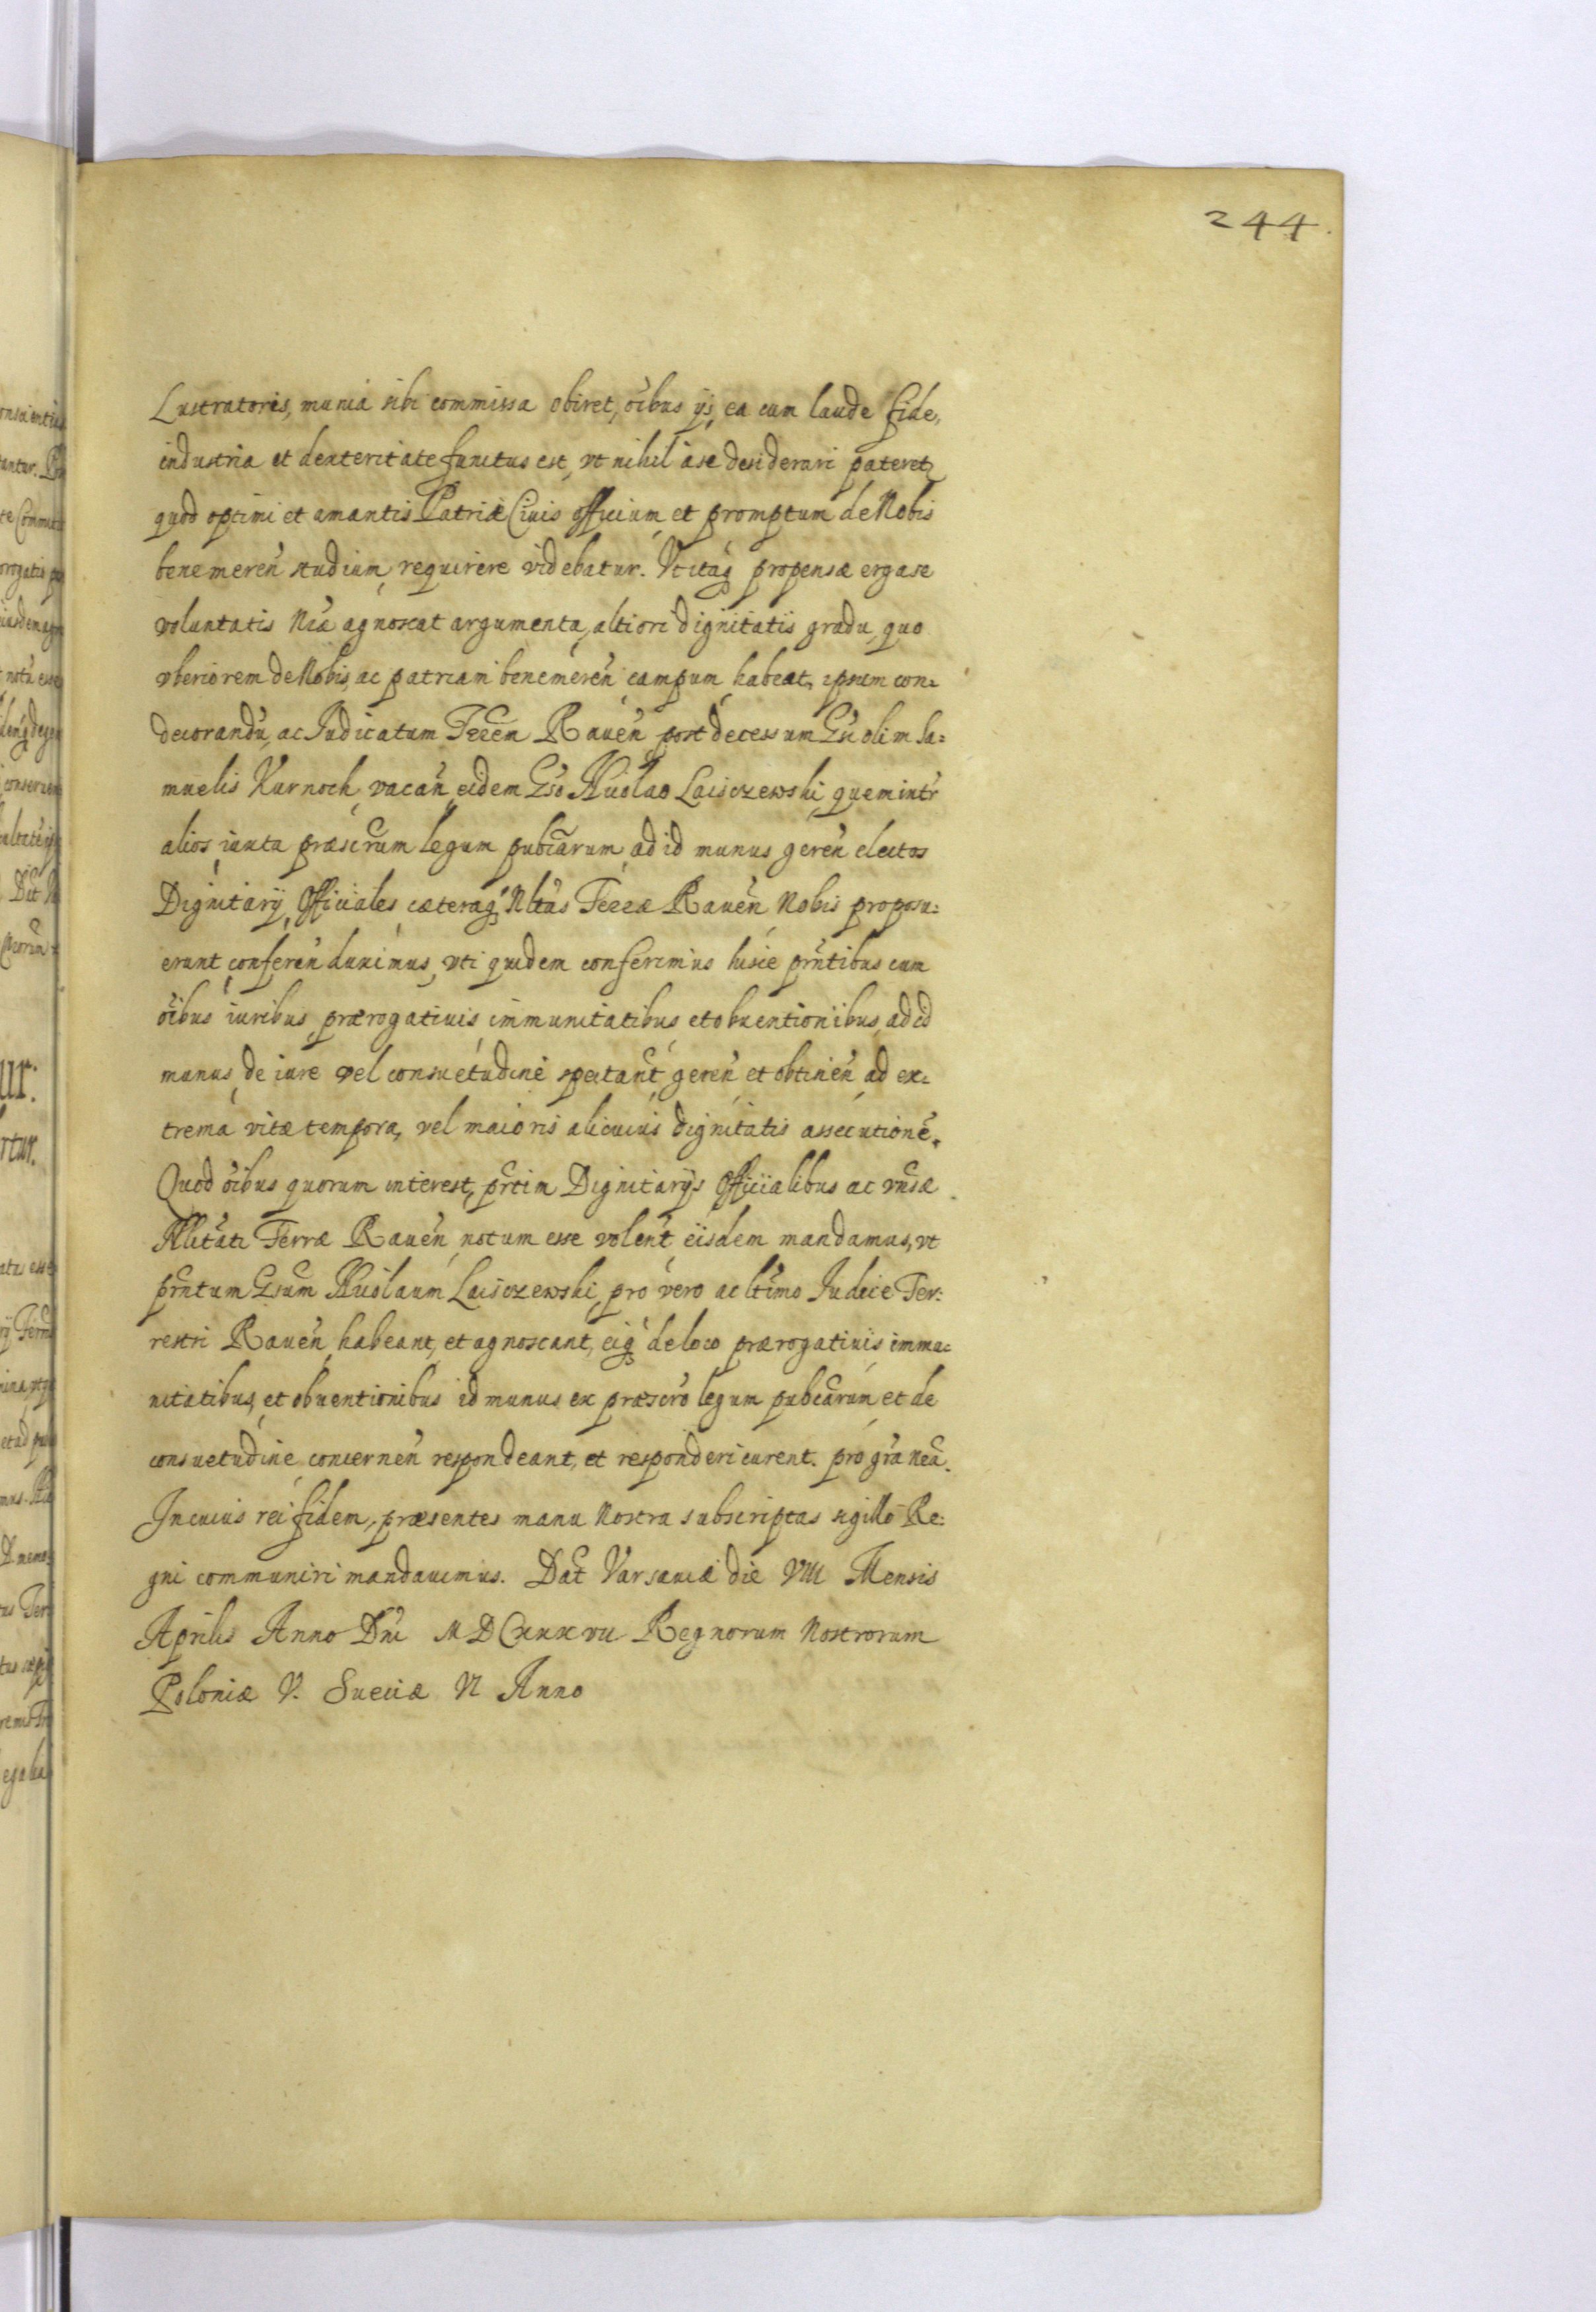 244.
Lustratoris, munia sibi commissa obiret, oibus ijs, ea cum laude fide,
industria et dexteritate functus est, vt nihil a se desiderari pateretr
quod optimi et amantis Patriæ Ciuis officium, et promptum de Nobis
benemeren̄ studium, requirere videbatur. Vt itaq propensæ erga se
voluntatis Nr̄æ agnoscat argumenta, altiori dignitatis gradu, quo
vberiorem de Nobis, ac patriam benemeren̄ campum habeat, ipsum con=
decorandū, ac Judicatum Terrēm Rauen̄ post decessum Gsi olim Sa=
muelis Karnoch, vacan̄, eidem Gso Nicolao Laisczewski, quem intr̄
alios, iuxta præscrum legum publ̄carum, ad id munus geren̄ electos
Dignitarij, Officiales cæteraq Nltas Terræ Rauen̄, Nobis proposu=
erunt, conferen̄ duximus, vti quidem conferimus hisce prn̄tibus cum
oibus iuribus, prærogatiuis, immunitatibus et obuentionibus, ad id
munus, de iure vel consuetudine spectant̄, geren̄ et obtinen̄, ad ex=
trema vitæ tempora, vel maioris alicuius dignitatis assecutionē.
Quod oibus quorum interest, prt̄im Dignitarijs Officialibus ac vn̄sæ
Nlitati Terræ Rauen̄, notum esse volent̄, eisdem mandamus, vt
prn̄tum Gsum Nicolaum Laisczewski, pro vero ac ltimo Judice Ter=
restri Rauen̄, habeant, et agnoscant, eiq de loco prærogatiuis immu=
nitatibus, et obuentionibus id munus ex præscro legum publ̄carum et de
consuetudine concernen̄ respondeant, et responderi curent. pro gr̄a nr̄a.
In cuius rei fidem, præsentes manu Nostra subscriptas sigillo Re=
gni communiri mandauimus. Dat̄ Varsauiæ die VIII Mensis
Aprilis Anno Dn̄i MDCXXXVII Regnorum Nostrorum
Poloniæ V. Sueciæ VI Anno